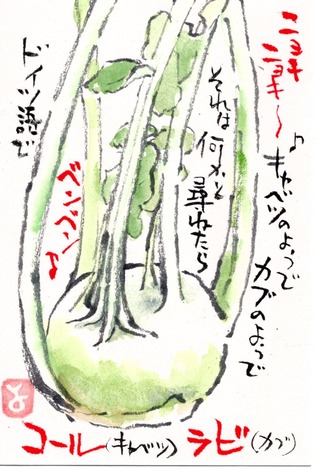 ニョキ
ニョキ〜
♪キャベツのよぅで
カブのよぅで
それは何かと
尋ねたら
ベンベン♪
ドイツ語で
コール(キャベツ)ラビ(カブ)